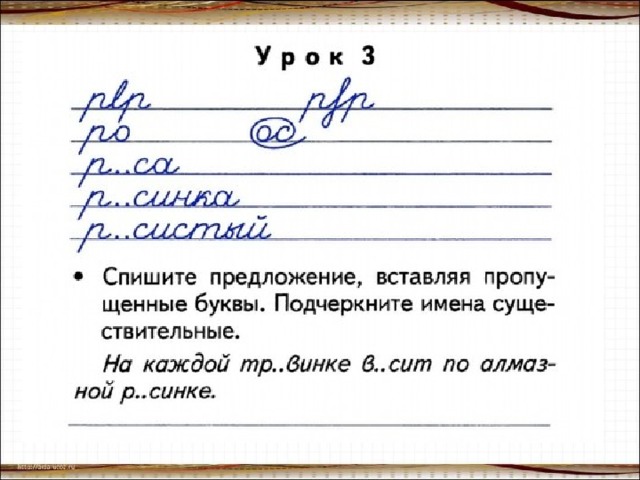 Урок 3
рвр рfр
ро ос
р..са
р..синка
р..систый
• Спишите предложение, вставляя пропу-
щенные буквы. Подчеркните имена суще-
ствительные.
На каждой тр..винке в..сит по алмаз-
ной р..синке.